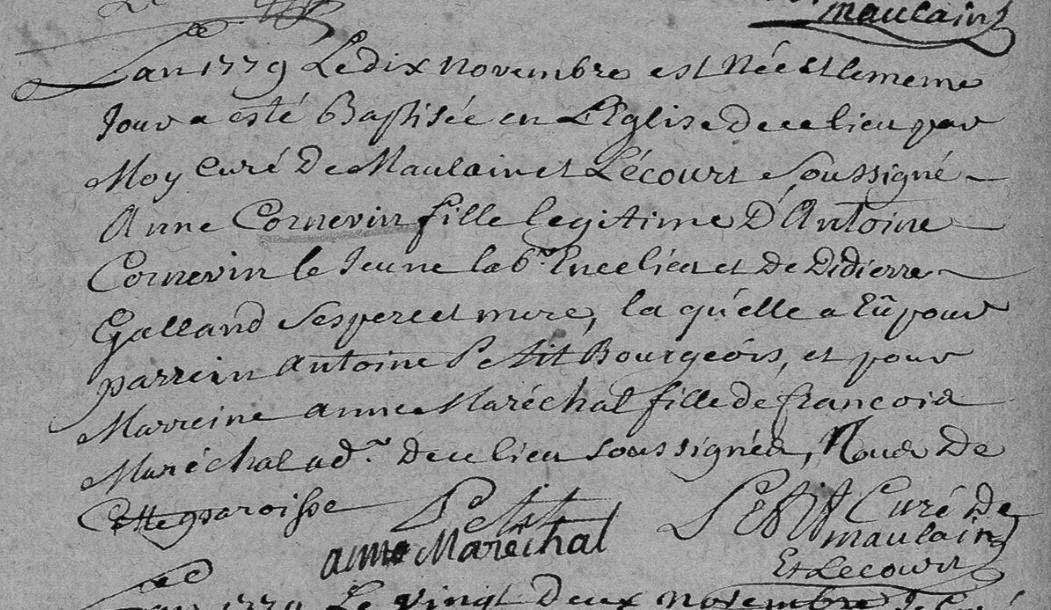 maulain
Lan 1779 Le dix novembre est Née et le meme
Jour a esté Baptisée en L'Eglise de ce lieu par
Moy Curé De Maulain et Lécourt Soussigné
Anne Cornevin fille legitime D'Antoine
Cornevin le Jeune lab.r En ce lieu et de Didierre
Galland Ses pere et mere, la qu'elle a Eû pour
parrein Antoine Petit Bourgeois, et pour
Marreine anne Maréchal fille de francois
Maréchal ad.n De ce lieu soussignés, Tous De
Cette paroisse Petit Petit Curé De
anne Maréchal maulain
Et Lecourt
Lan 1779 Le vingt Deux novembre